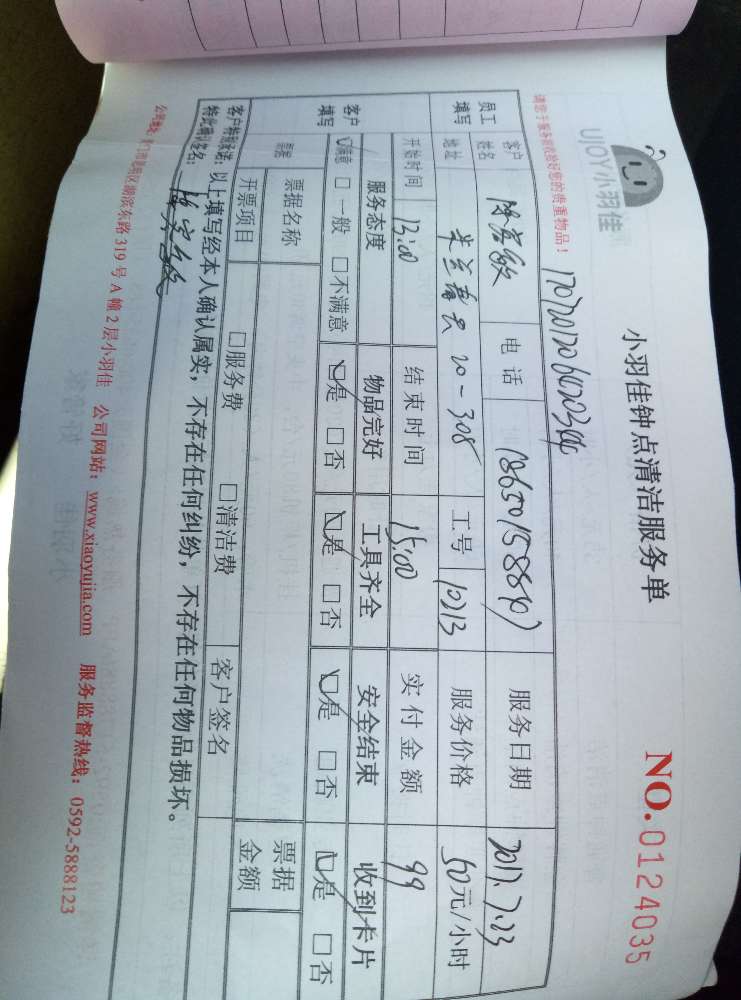 UJOY小羽佳
小羽佳钟点清洁服务单
NO.0124035
请您于服务前收拾好您的贵重物品！
员工填写
客户姓名
电话
服务日期 2017.7.23
地址 20-308
工号 10213
服务价格 50元/小时
开始时间 13:00
结束时间 15:00
实付金额 99
客户填写
服务态度 物品完好 工具齐全 安全结束 收到卡片
☑满意 □一般 □不满意 ☑是 □否 ☑是 □否 ☑是 □否 ☑是 □否
票据
票据名称
票据金额
开票项目 □服务费 □清洁费 客户签名
客户特别承诺：以上填写经本人确认属实，不存在任何纠纷，不存在任何物品损坏。
特此确认签名：
319号A幢2层小羽佳 公司网站：www.xiaoyujia.com 服务监督热线：0592-5888123